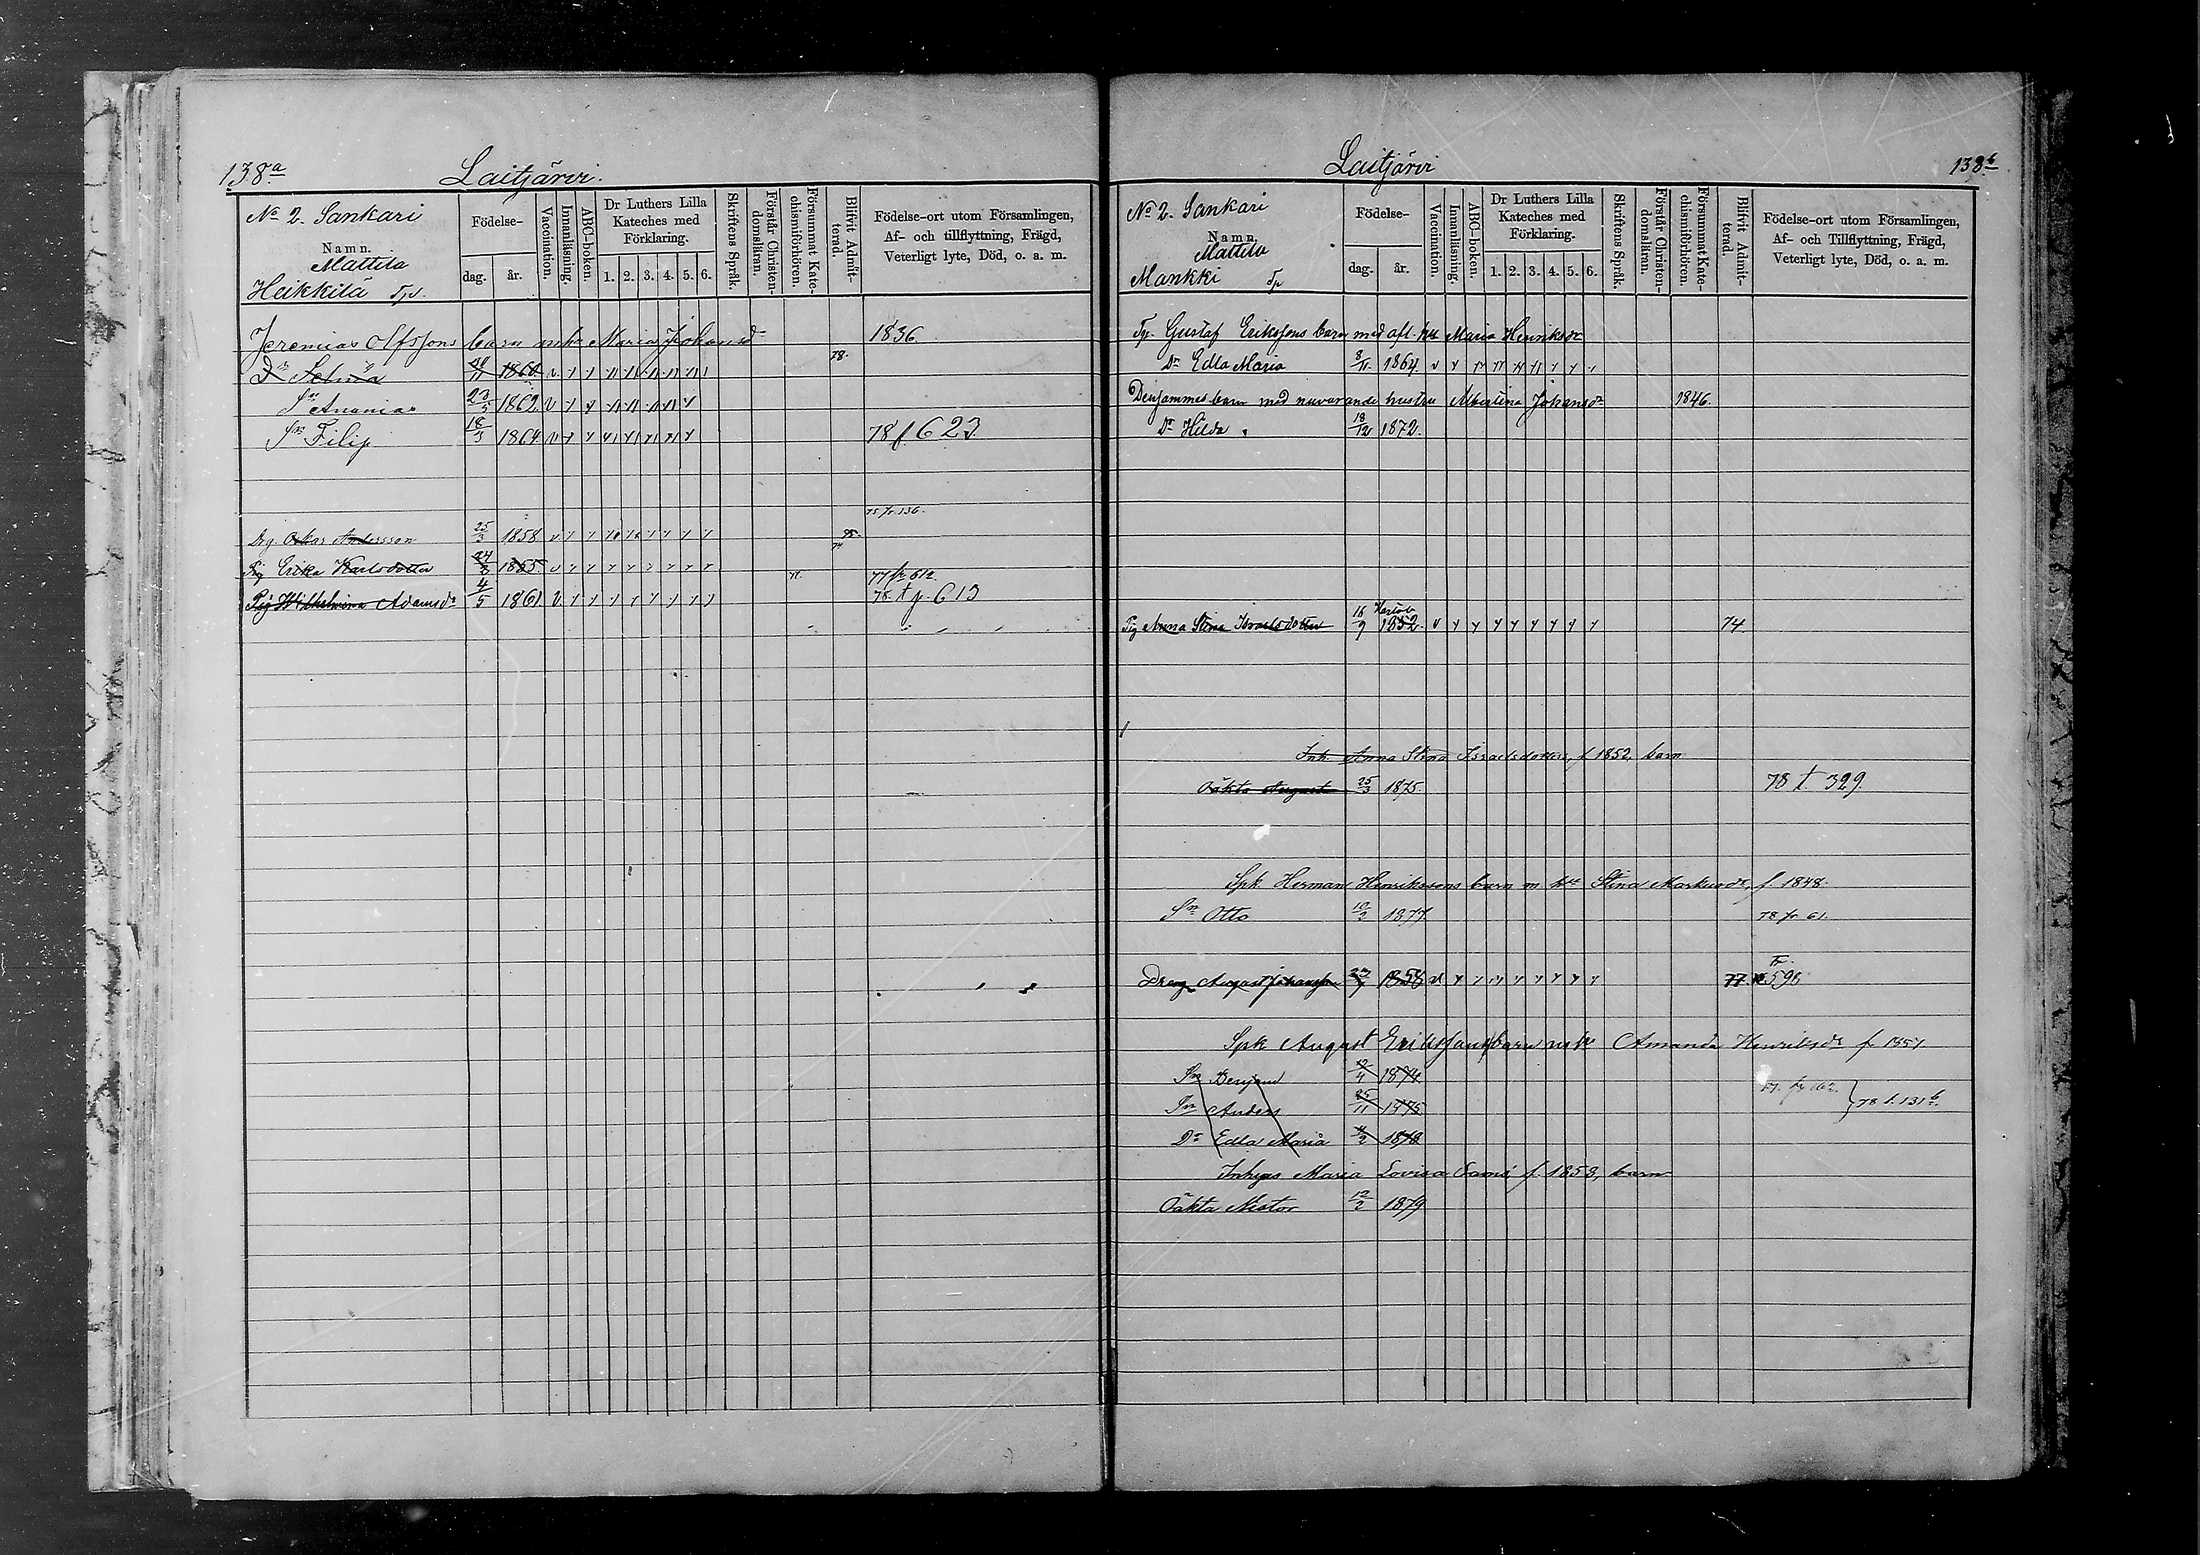 138a
Laitjärvi.
No 2. Sankari
Namn.
Mattila
Heikkilä Tp.
Födelse-
dag. år.
Vaccination.
Innanläsning.
ABC-boken.
Dr Luthers Lilla Kateches med Förklaring.
1. 2. 3. 4. 5. 6.
Skriftens Språk.
Förstår Christendomsläran.
Försummat Katechismiförhören.
Blifvit Admitterad.
Födelse-ort utom Församlingen,
Af- och tillflyttning, Frägd,
Veterligt lyte, Död, o. a. m.
Jeremias Olfssons barn m hu Maria Johansd 1836
Dr Selma 11 1860 78.
Sn Ananias 23/5 1862
Sn Filip 18/3 1864 78 f 623
75 fr 136.
Drg. Oskar Andersson 25/3 1858
Pig Erika Karlsdotter 24/8 1855 77 fr 612.
Pig Wilhelmina Adamsdr 4/5 1861 78. t p. 613
Laitjärvi
138b
No 2. Sankari
Namn.
Mattila
Mankki Tp
Födelse-
dag. år.
Vaccination.
Innanläsning.
ABC-boken.
Dr Luthers Lilla Kateches med Förklaring.
1. 2. 3. 4. 5. 6.
Skriftens Språk.
Förstår Christendomsläran.
Försummat Katechismiförhören.
Blifvit Admitterad.
Födelse-ort utom Församlingen,
Af- och Tillflyttning, Frägd,
Veterligt lyte, Död, o. a. m.
Tp. Gustaf Erikssons barn med afl. hu Maria Henriksdr
Dr Edla Maria 8/11 1864
Densammes barn med nuvarande hustru Albertina Johansdr 1846.
Dr Hilda 18/12 1872.
Pig Anna Stina Israelsdotter 16/9 1852. 74.
Inh. Anna Stina Israelsdotters, f. 1852, barn
Oäkta August 25/3 1875. 78 t. 329.
Spk Herman Henrikssons barn m. hu Stina Markusdr, f. 1848.
Sn Otto 10/2 1877 78 fr 61.
Dreng August Johansson 1858 77. Fr. 590
Spk August Erikssons barn m hu Amanda Henriksdr f. 1851.
Sn 4 1874
Sn Anders 25/11 1875 78 t. 131b.
Dr Edla Maria 2 1878
Inhyses Maria Lovisa f. 1853, barn
Oäkta Nestor 12/2 1879